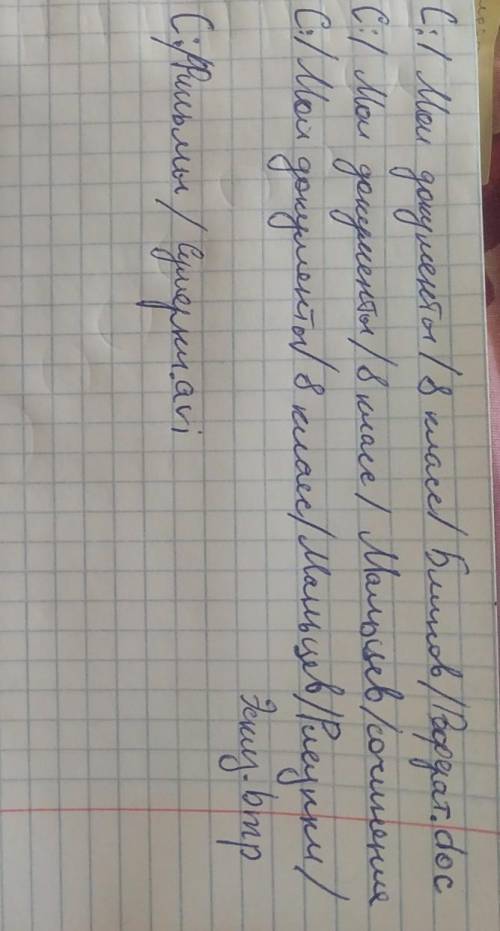 C:/ Мои документы / 8 класс / Блинов / Реферат.doc
C:/ Мои документы / 8 класс / Мальцев / сочинение
C:/ Мои документы / 8 класс / Мальцев / Рисунки /
Эскиз.bmp
C:/Фильмы / Сумерки.avi